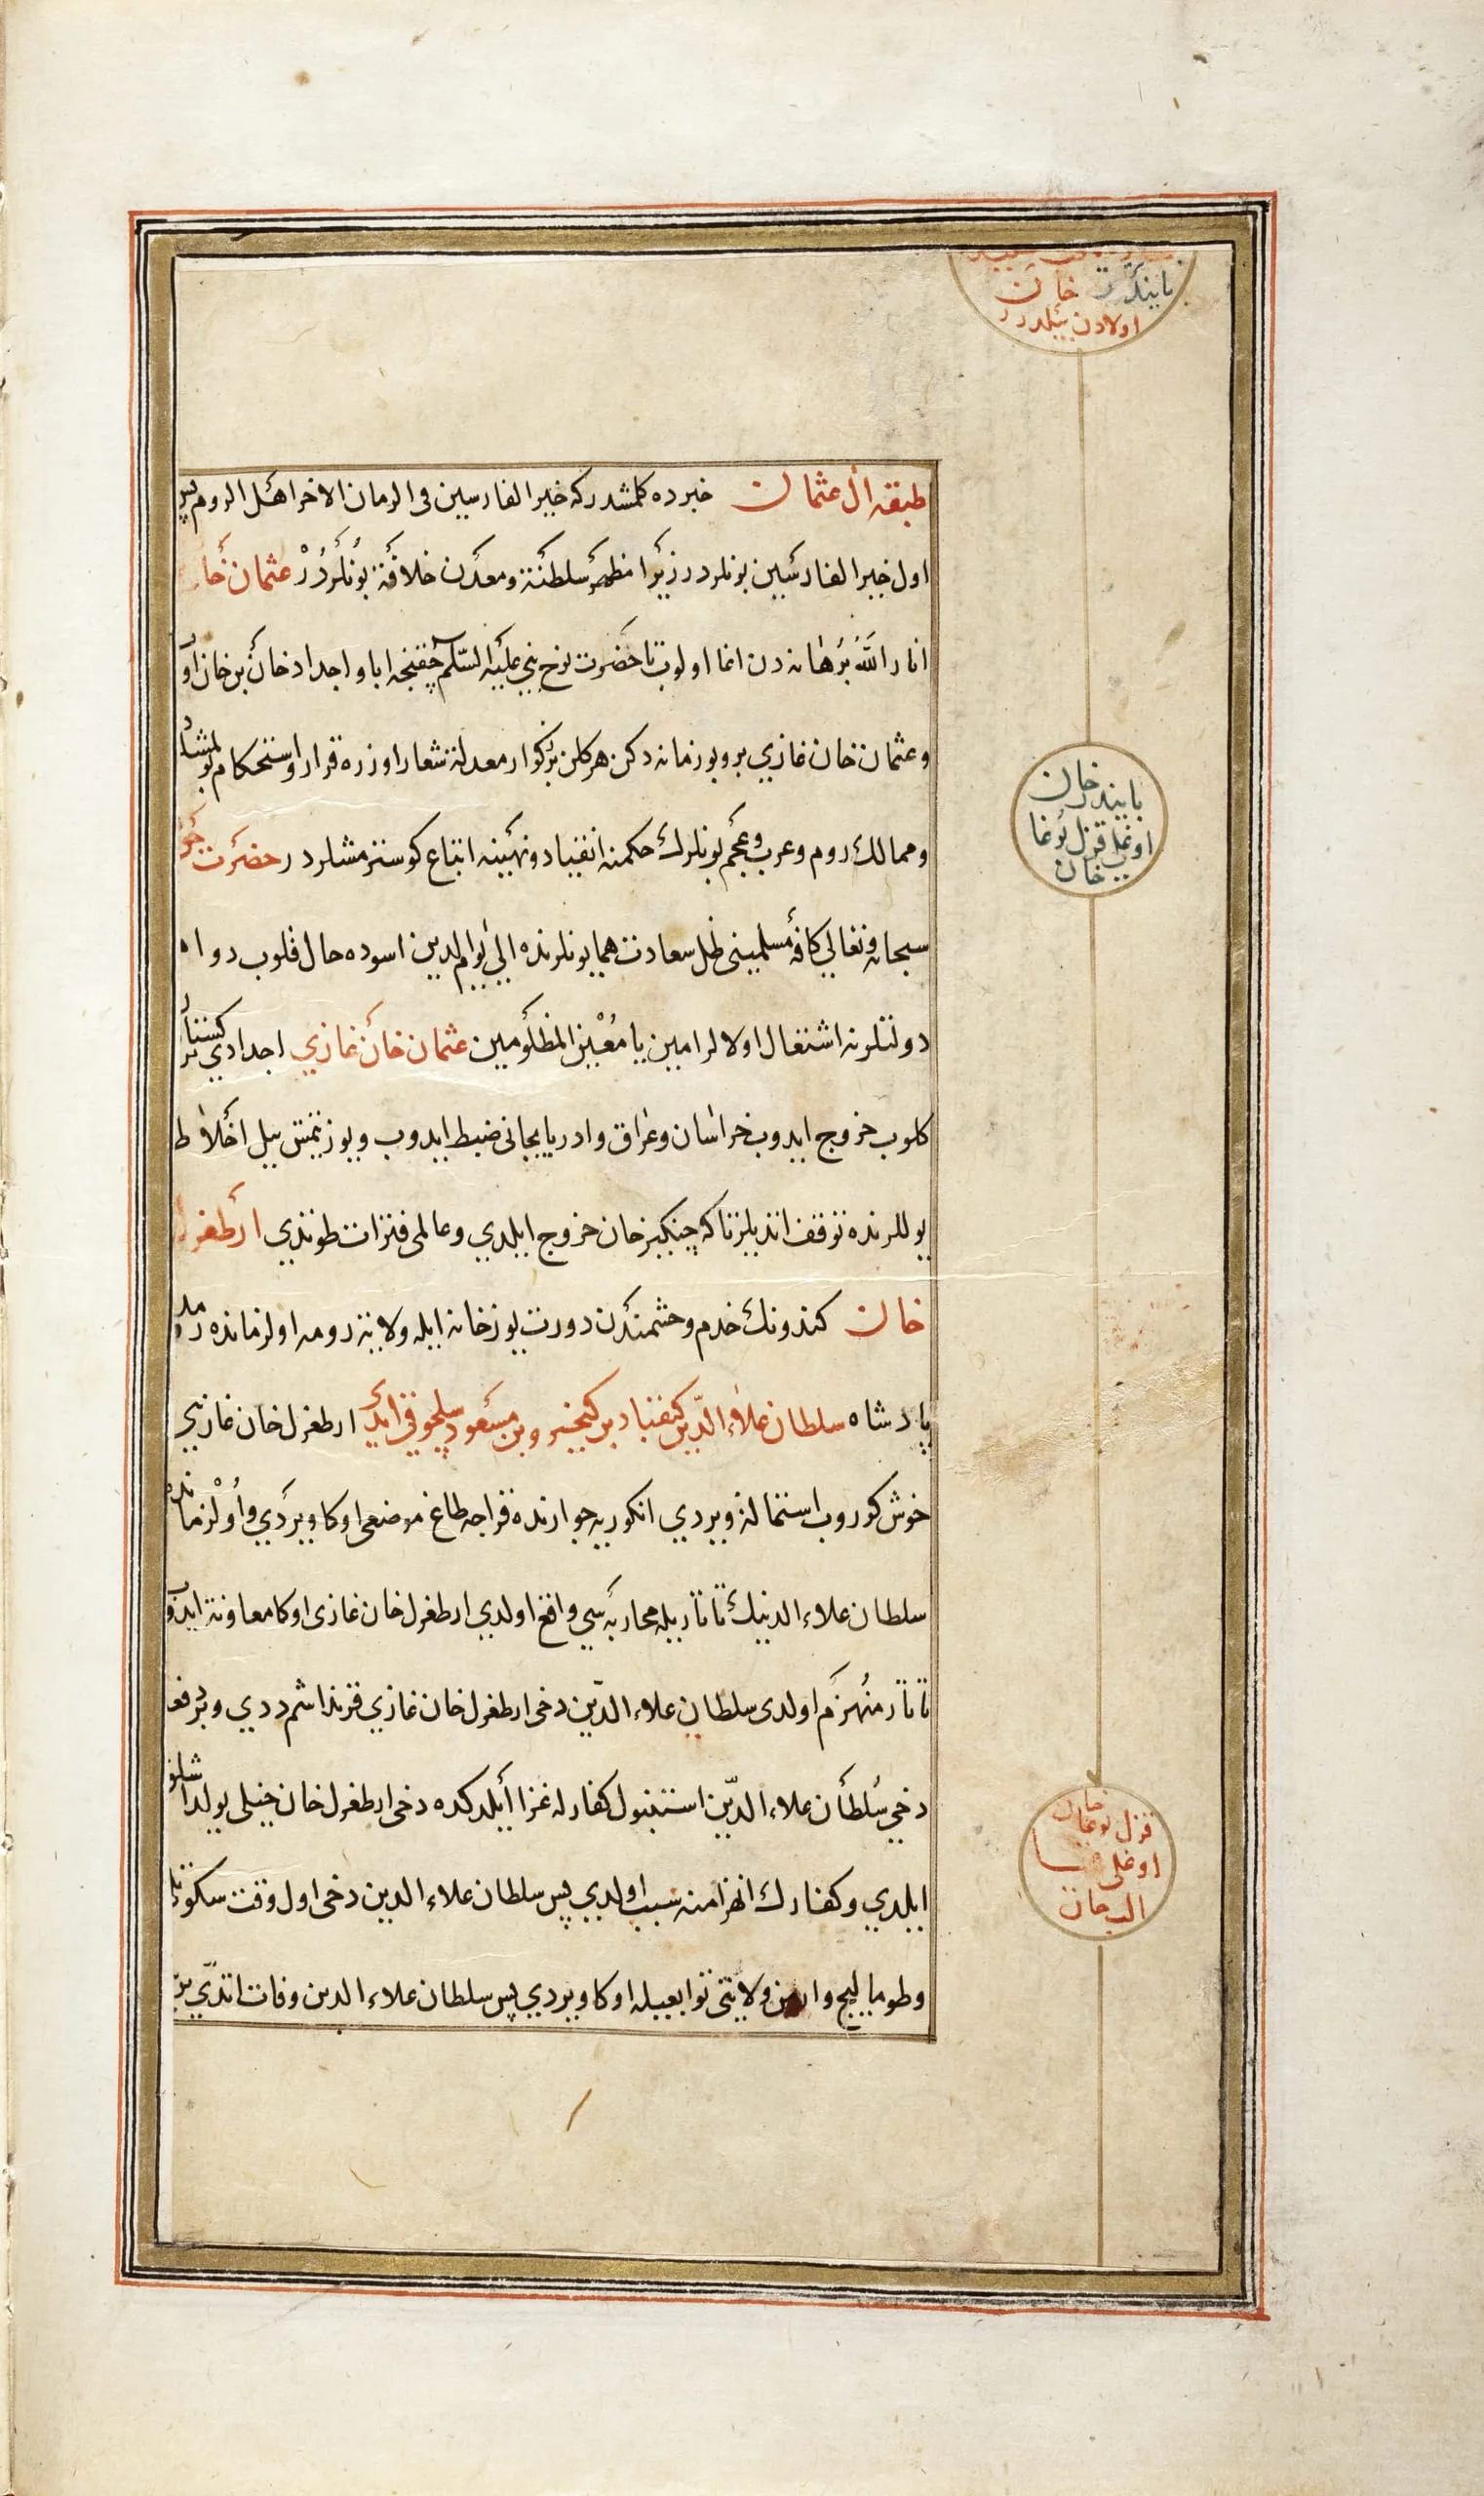 بايندر خان
اولادن بيلدرر
طبقهٔ آل عثمان خبرده كلمشدركه خير الفارسين فى الزمان الاخر اهل الروم پس
اول خير الفارسين بونلردر زيرا مظهر سلطنة ومعدن خلافة بونلردُرْ عثمان خان
انار اللّٰه برهانه دن اغا اولوب تا حضرت نوح نبي عليه السّلم چقنجه ابا و اجداد خان بن خان
وعثمان خان غازي بر ويوز زمانه دكن هركلن بزكوار معدلة شعار اوزره قرار واستحكام بولمشلر
وممالك روم وعرب وعجم بونلرك حكمنه انقياد ونهينه اتباع كوسترمشلردر حضرت حق
سبحانه وتعالي كافهٔ مسلميني ظل سعادت همايونلرنده الي يوم الدين اسوده حال قلوب دوام
دولتلرنه اشتغال اولالر امين يا مُعين المظلومين عثمان خان غازي اجدادي
كلوب خروج ايدوب خراسان وعراق وادربايجانى ضبط ايدوب ويوز يتمش ييل اخلاط
يوللرنده توقف اتديلر تاكه چنكيز خان خروج ايلدي وعالمى فترات طوتدي ارطغرل
خان كندونك خدم وحشمندن دورت يوز خانه ايله ولاية رومه اولزمانده رومده
پادشاه سلطان علاء الدّين كيقباد بن كيخسرو بن مسعود سلجوقي ايدي ارطغرل خان غازيي
خوش كوروب استمالة ويردي انكوريه جوارنده قراجه طاغ موضعى اوكا ويردي و اولزمانده
سلطان علاء الدينك تاتار يله محاربه سي واقع اولدي ارطغرل خان غازى اوكا معاونة ايدوب
تاتار منهزم اولدى سلطان علاء الدّين دخى ارطغرل خان غازي قرنداشم ددي وبر دفعه
دخي سُلطان علاء الدّين استنبول كفارله غزا ايلدكده دخى ارطغرل خان خيلى يولداشلق
ايلدي وكفارك انهزامنه سبب اولدي پس سلطان علاء الدين دخى اول وقت سكوتله
وطومانيج و ولايتنى توابعيله اوكا ويردي پس سلطان علاء الدين وفات اتدي
بايندر خان
اوغلى قزل بوغا
خان
قزل بوغا خان
اوغلى
الب خان